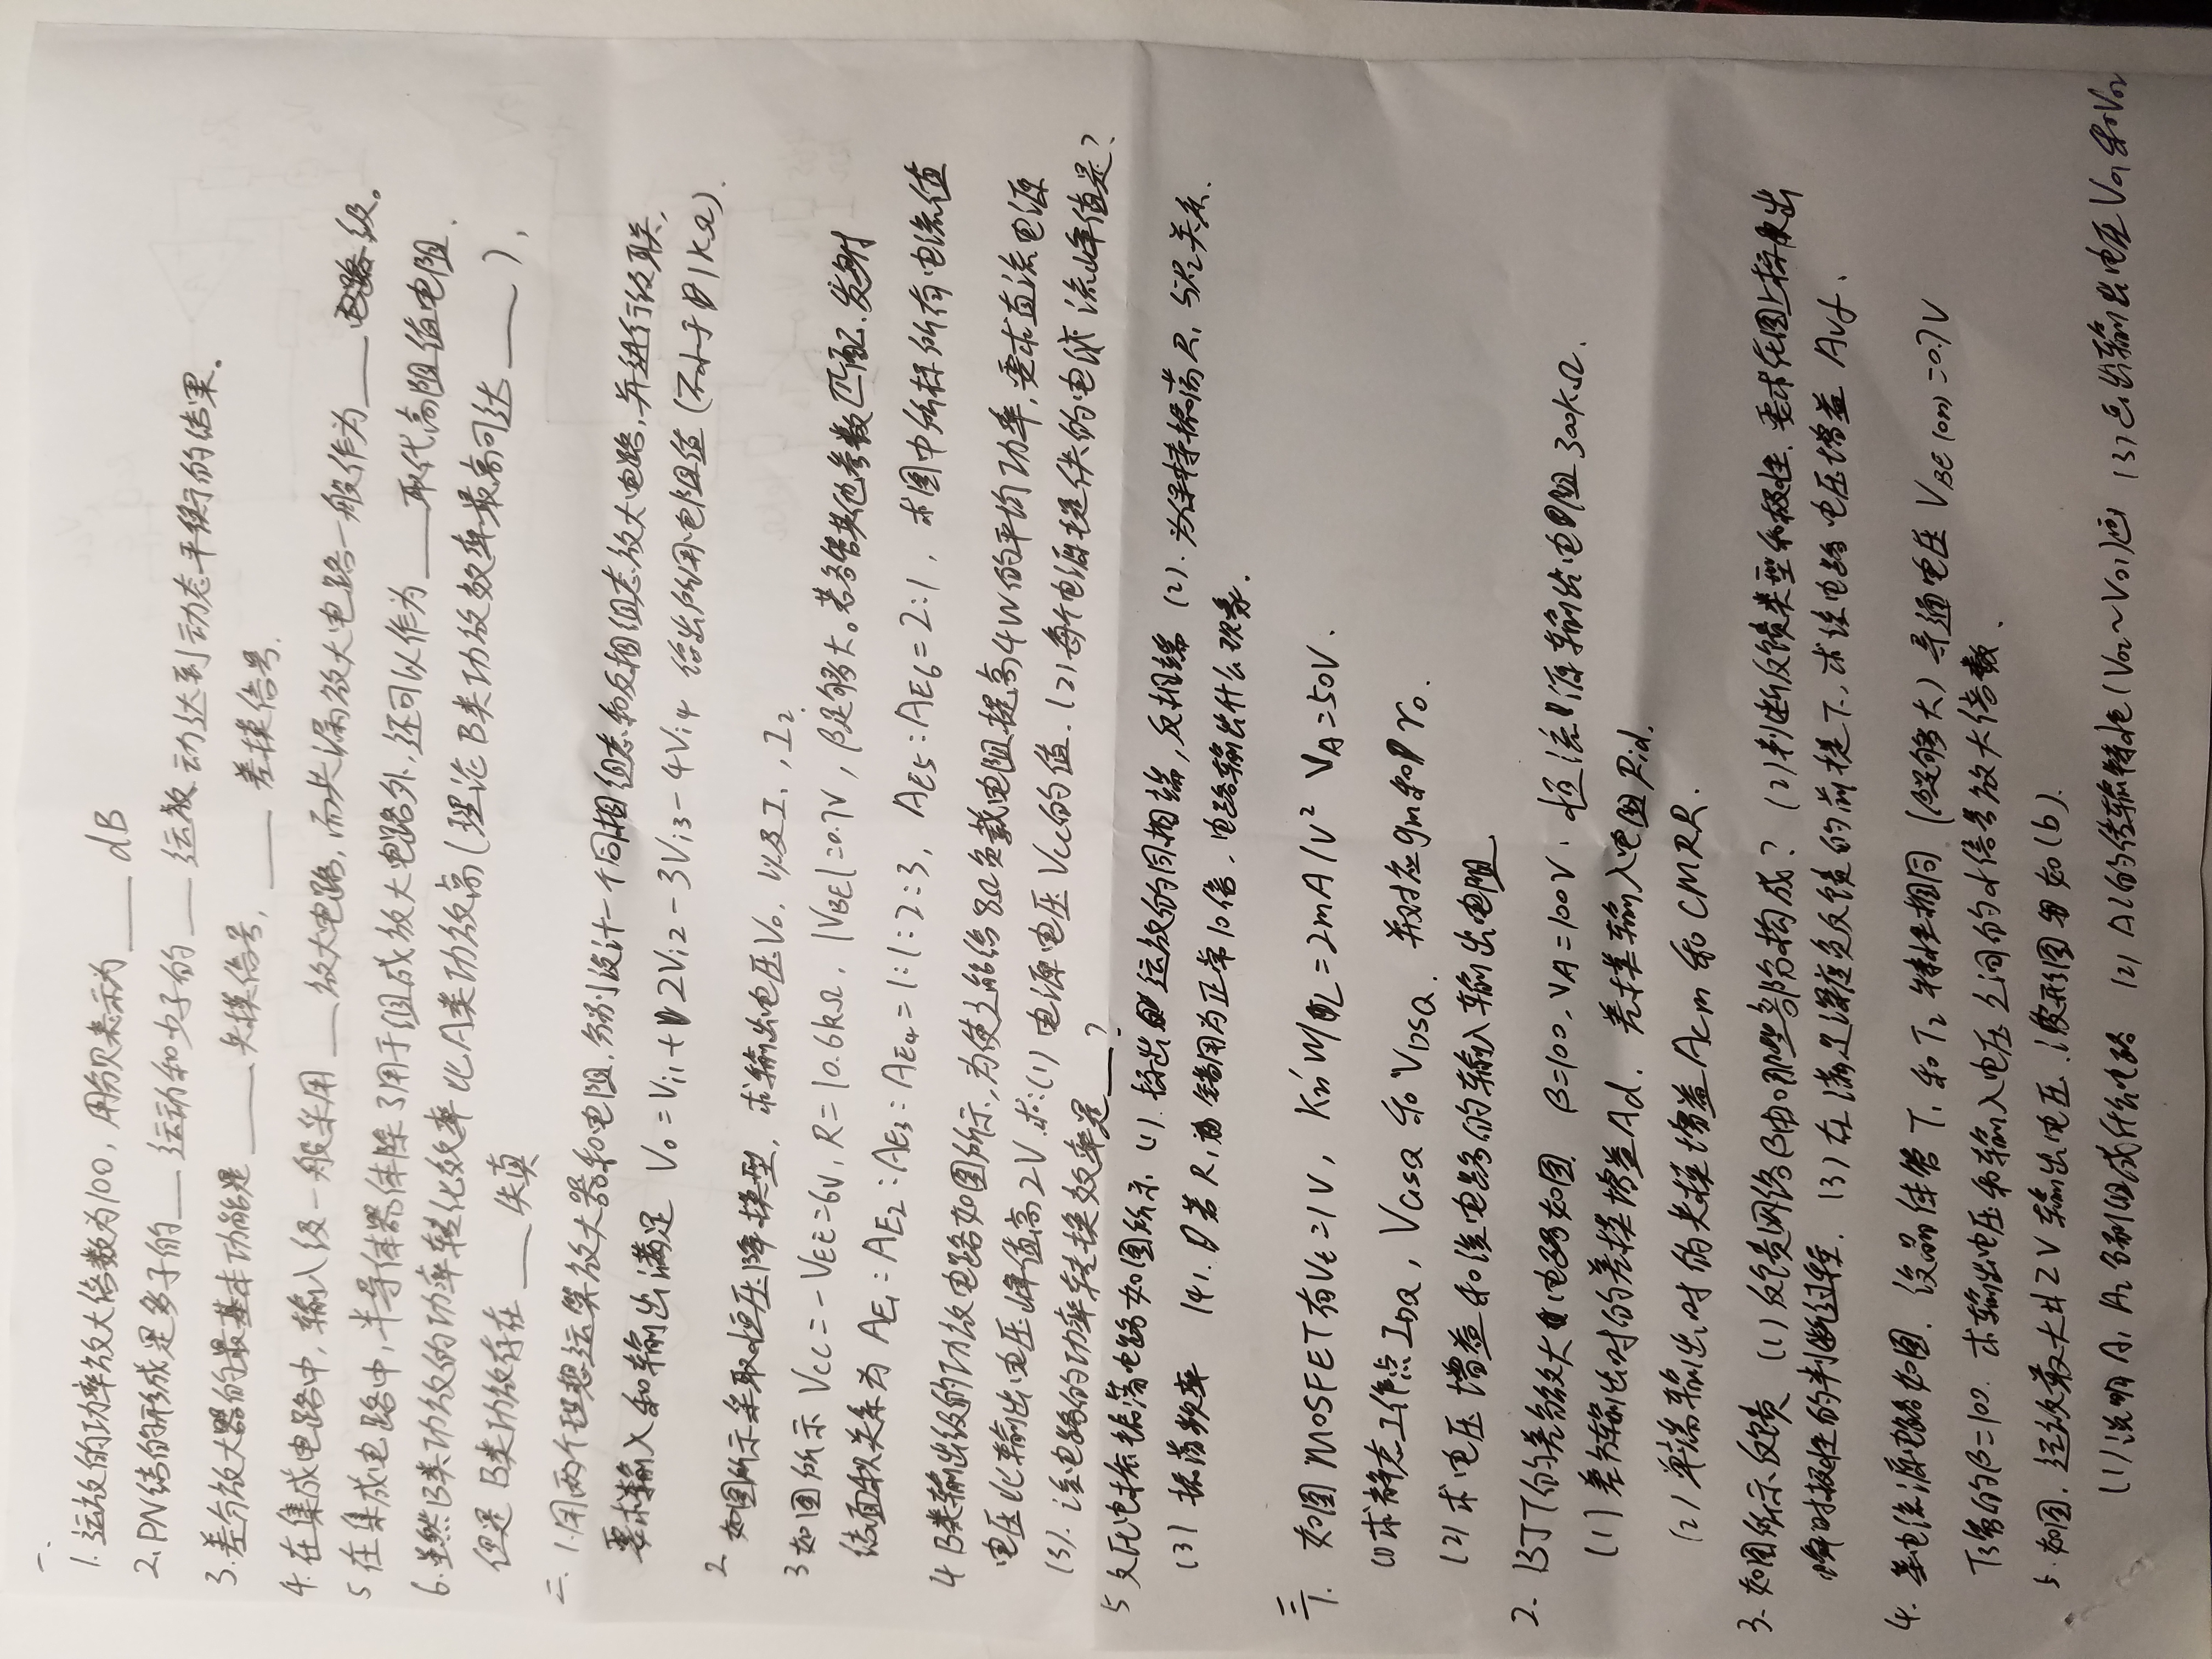 一、
1. 运放的功率放大倍数为100，用分贝表示为____dB
2. PN结的形成是多子的__运动和少子的__运动动达到动态平衡的结果。
3. 差分放大器的最基本功能是____共模信号，____差模信号.
4. 在集成电路中，输入级一般采用__放大电路，而共漏放大电路一般作为__级。
5 在集成电路中，半导体器件除了用于组成放大电路外，还可以作为___取代高阻值电阻.
6. 虽然B类功放的功率转化效率比A类功放高(理论B类功放效率最高可达___)，
但是B类功放存在___失真
二、1. 用两个理想运算放大器和电阻，分别设计一个同相组态和反相组态放大电路，并进行级联，
要求输入和输出满足 Vo = Vi1 + 2Vi2 - 3Vi3 - 4Vi4 给出所用电阻值(不小于1kΩ).
2. 如图所示采取恒压降模型，求输出电压Vo，以及I1, I2
3 如图所示 Vcc = -VEE = 6V, R = 10.6kΩ, |VBE| = 0.7V, β足够大。若各管其他参数匹配.发射
结面积关系为 AE1 : AE2 : AE3 : AE4 = 1:1:2:3, AE5 : AE6 = 2:1, 求图中所标所有电流值
4 B类输出级的功放电路如图所示，为使之能给8Ω负载电阻提高4W的平均功率，要求直流电源
电压比输出电压峰值高2V. 求:(1) 电源电压Vcc的值. (2) 每个电源提供的电流峰值是?
(3). 该电路的功率转换效率是___?
5 文氏电桥振荡电路如图所示. (1). 标出运放的同相端，反相端 (2). 为维持振荡R1与R2关系.
(3) 振荡频率 (4). 若R1错用为正常10倍，电路输出什么现象.
三 1. 如图MOSFET有Vt = 1V, Kn'W/L = 2mA/V² VA = 50V.
(1)求静态工作点IDQ, VGSQ和VDSQ. 并对应gm和ro.
(2) 求电压增益和该电路的输入输出电阻
2. BJT的差分放大电路如图 β=100. VA = 100V. 恒流源输出电阻300kΩ.
(1) 差分输出时的差模增益Ad. 差模输入电阻Rid.
(2) 单端输出时的共模增益Acm和CMRR.
3. 如图所示反馈 (1) 反馈网络由哪些部分构成? (2) 判断反馈类型和极性. 要求在图上标出
瞬时极性的判断过程. (3) 在满足深度负反馈的前提下，求该电路电压增益Avf.
4. 差电流源电路如图. 设晶体管T1和T2特性相同 (β足够大) 导通电压 VBE(on) = 0.7V
T3管的β=100. 求输出电压和输入电压之间的小信号放大倍数.
5. 如图. 运放最大±12V输出电压. 波形图如(b).
(1) 说明A1 A2各组成什么电路 (2) A1的传输特性(Vo1~Vi)画 (3) 画出输出电压Vo1和Vo2